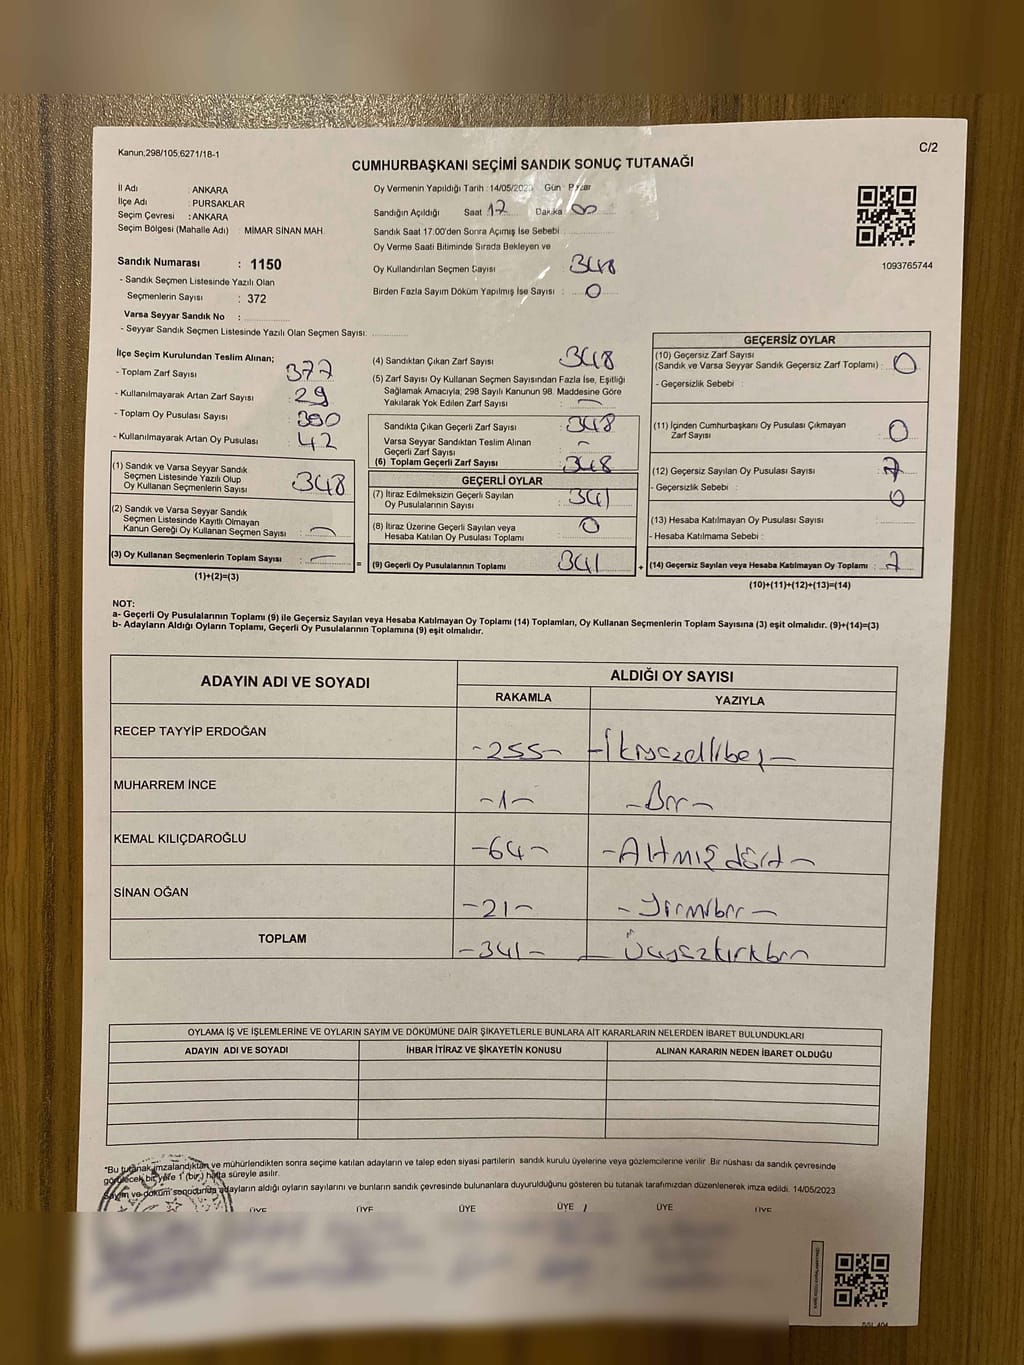 Kanun;298/105;6271/18-1
C/2
CUMHURBAŞKANI SEÇİMİ SANDIK SONUÇ TUTANAĞI
İl Adı : ANKARA
İlçe Adı : PURSAKLAR
Seçim Çevresi : ANKARA
Seçim Bölgesi (Mahalle Adı) : MİMAR SİNAN MAH.
Sandık Numarası : 1150
- Sandık Seçmen Listesinde Yazılı Olan
Seçmenlerin Sayısı : 372
Varsa Seyyar Sandık No :
- Seyyar Sandık Seçmen Listesinde Yazılı Olan Seçmen Sayısı:
Oy Vermenin Yapıldığı Tarih : 14/05/2023 Gün : Pazar
Sandığın Açıldığı Saat 17 Dakika 00
Sandık Saat 17:00'den Sonra Açımış İse Sebebi :
Oy Verme Saati Bitiminde Sırada Bekleyen ve
Oy Kullandırılan Seçmen Sayısı : 348
Birden Fazla Sayım Döküm Yapılmış İse Sayısı : 0
1093765744
İlçe Seçim Kurulundan Teslim Alınan;
- Toplam Zarf Sayısı : 377
- Kullanılmayarak Artan Zarf Sayısı : 29
- Toplam Oy Pusulası Sayısı : 390
- Kullanılmayarak Artan Oy Pusulası : 42
(1) Sandık ve Varsa Seyyar Sandık
Seçmen Listesinde Yazılı Olup
Oy Kullanan Seçmenlerin Sayısı : 348
(2) Sandık ve Varsa Seyyar Sandık
Seçmen Listesinde Kayıtlı Olmayan
Kanun Gereği Oy Kullanan Seçmen Sayısı : —
(3) Oy Kullanan Seçmenlerin Toplam Sayısı : —
(1)+(2)=(3)
(4) Sandıktan Çıkan Zarf Sayısı : 348
(5) Zarf Sayısı Oy Kullanan Seçmen Sayısından Fazla İse, Eşitliği
Sağlamak Amacıyla, 298 Sayılı Kanunun 98. Maddesine Göre
Yakılarak Yok Edilen Zarf Sayısı : —
Sandıkta Çıkan Geçerli Zarf Sayısı : 348
Varsa Seyyar Sandıktan Teslim Alınan
Geçerli Zarf Sayısı : —
(6) Toplam Geçerli Zarf Sayısı : 348
GEÇERLİ OYLAR
(7) İtiraz Edilmeksizin Geçerli Sayılan
Oy Pusulalarının Sayısı : 341
(8) İtiraz Üzerine Geçerli Sayılan veya
Hesaba Katılan Oy Pusulası Toplamı : 0
= (9) Geçerli Oy Pusulalarının Toplamı : 341
GEÇERSİZ OYLAR
(10) Geçersiz Zarf Sayısı
(Sandık ve Varsa Seyyar Sandık Geçersiz Zarf Toplamı) : 0
- Geçersizlik Sebebi :
(11) İçinden Cumhurbaşkanı Oy Pusulası Çıkmayan
Zarf Sayısı : 0
(12) Geçersiz Sayılan Oy Pusulası Sayısı : 7
- Geçersizlik Sebebi : 0
(13) Hesaba Katılmayan Oy Pusulası Sayısı :
- Hesaba Katılmama Sebebi :
+ (14) Geçersiz Sayılan veya Hesaba Katılmayan Oy Toplamı : 7
(10)+(11)+(12)+(13)=(14)
NOT:
a- Geçerli Oy Pusulalarının Toplamı (9) ile Geçersiz Sayılan veya Hesaba Katılmayan Oy Toplamı (14) Toplamları, Oy Kullanan Seçmenlerin Toplam Sayısına (3) eşit olmalıdır. (9)+(14)=(3)
b- Adayların Aldığı Oyların Toplamı, Geçerli Oy Pusulalarının Toplamına (9) eşit olmalıdır.
ADAYIN ADI VE SOYADI ALDIĞI OY SAYISI
RAKAMLA YAZIYLA
RECEP TAYYİP ERDOĞAN -255- -İkiyüzellibeş-
MUHARREM İNCE -1- -Bir-
KEMAL KILIÇDAROĞLU -64- -Altmış dört-
SİNAN OĞAN -21- -Yirmibir-
TOPLAM -341- - Üçyüzkırkbir
OYLAMA İŞ VE İŞLEMLERİNE VE OYLARIN SAYIM VE DÖKÜMÜNE DAİR ŞİKAYETLERLE BUNLARA AİT KARARLARIN NELERDEN İBARET BULUNDUKLARI
ADAYIN ADI VE SOYADI İHBAR İTİRAZ VE ŞİKAYETİN KONUSU ALINAN KARARIN NEDEN İBARET OLDUĞU
"Bu tutanak imzalandıktan ve mühürlendikten sonra seçime katılan adayların ve talep eden siyasi partilerin sandık kurulu üyelerine veya gözlemcilerine verilir. Bir nüshası da sandık çevresinde
görülecek bir yere 1 (bir) hafta süreyle asılır.
Sayım ve döküm sonucunda adayların aldığı oyların sayılarını ve bunların sandık çevresinde bulunanlara duyurulduğunu gösteren bu tutanak tarafımızdan düzenlenerek imza edildi. 14/05/2023
ÜYE ÜYE ÜYE ÜYE ÜYE ÜYE